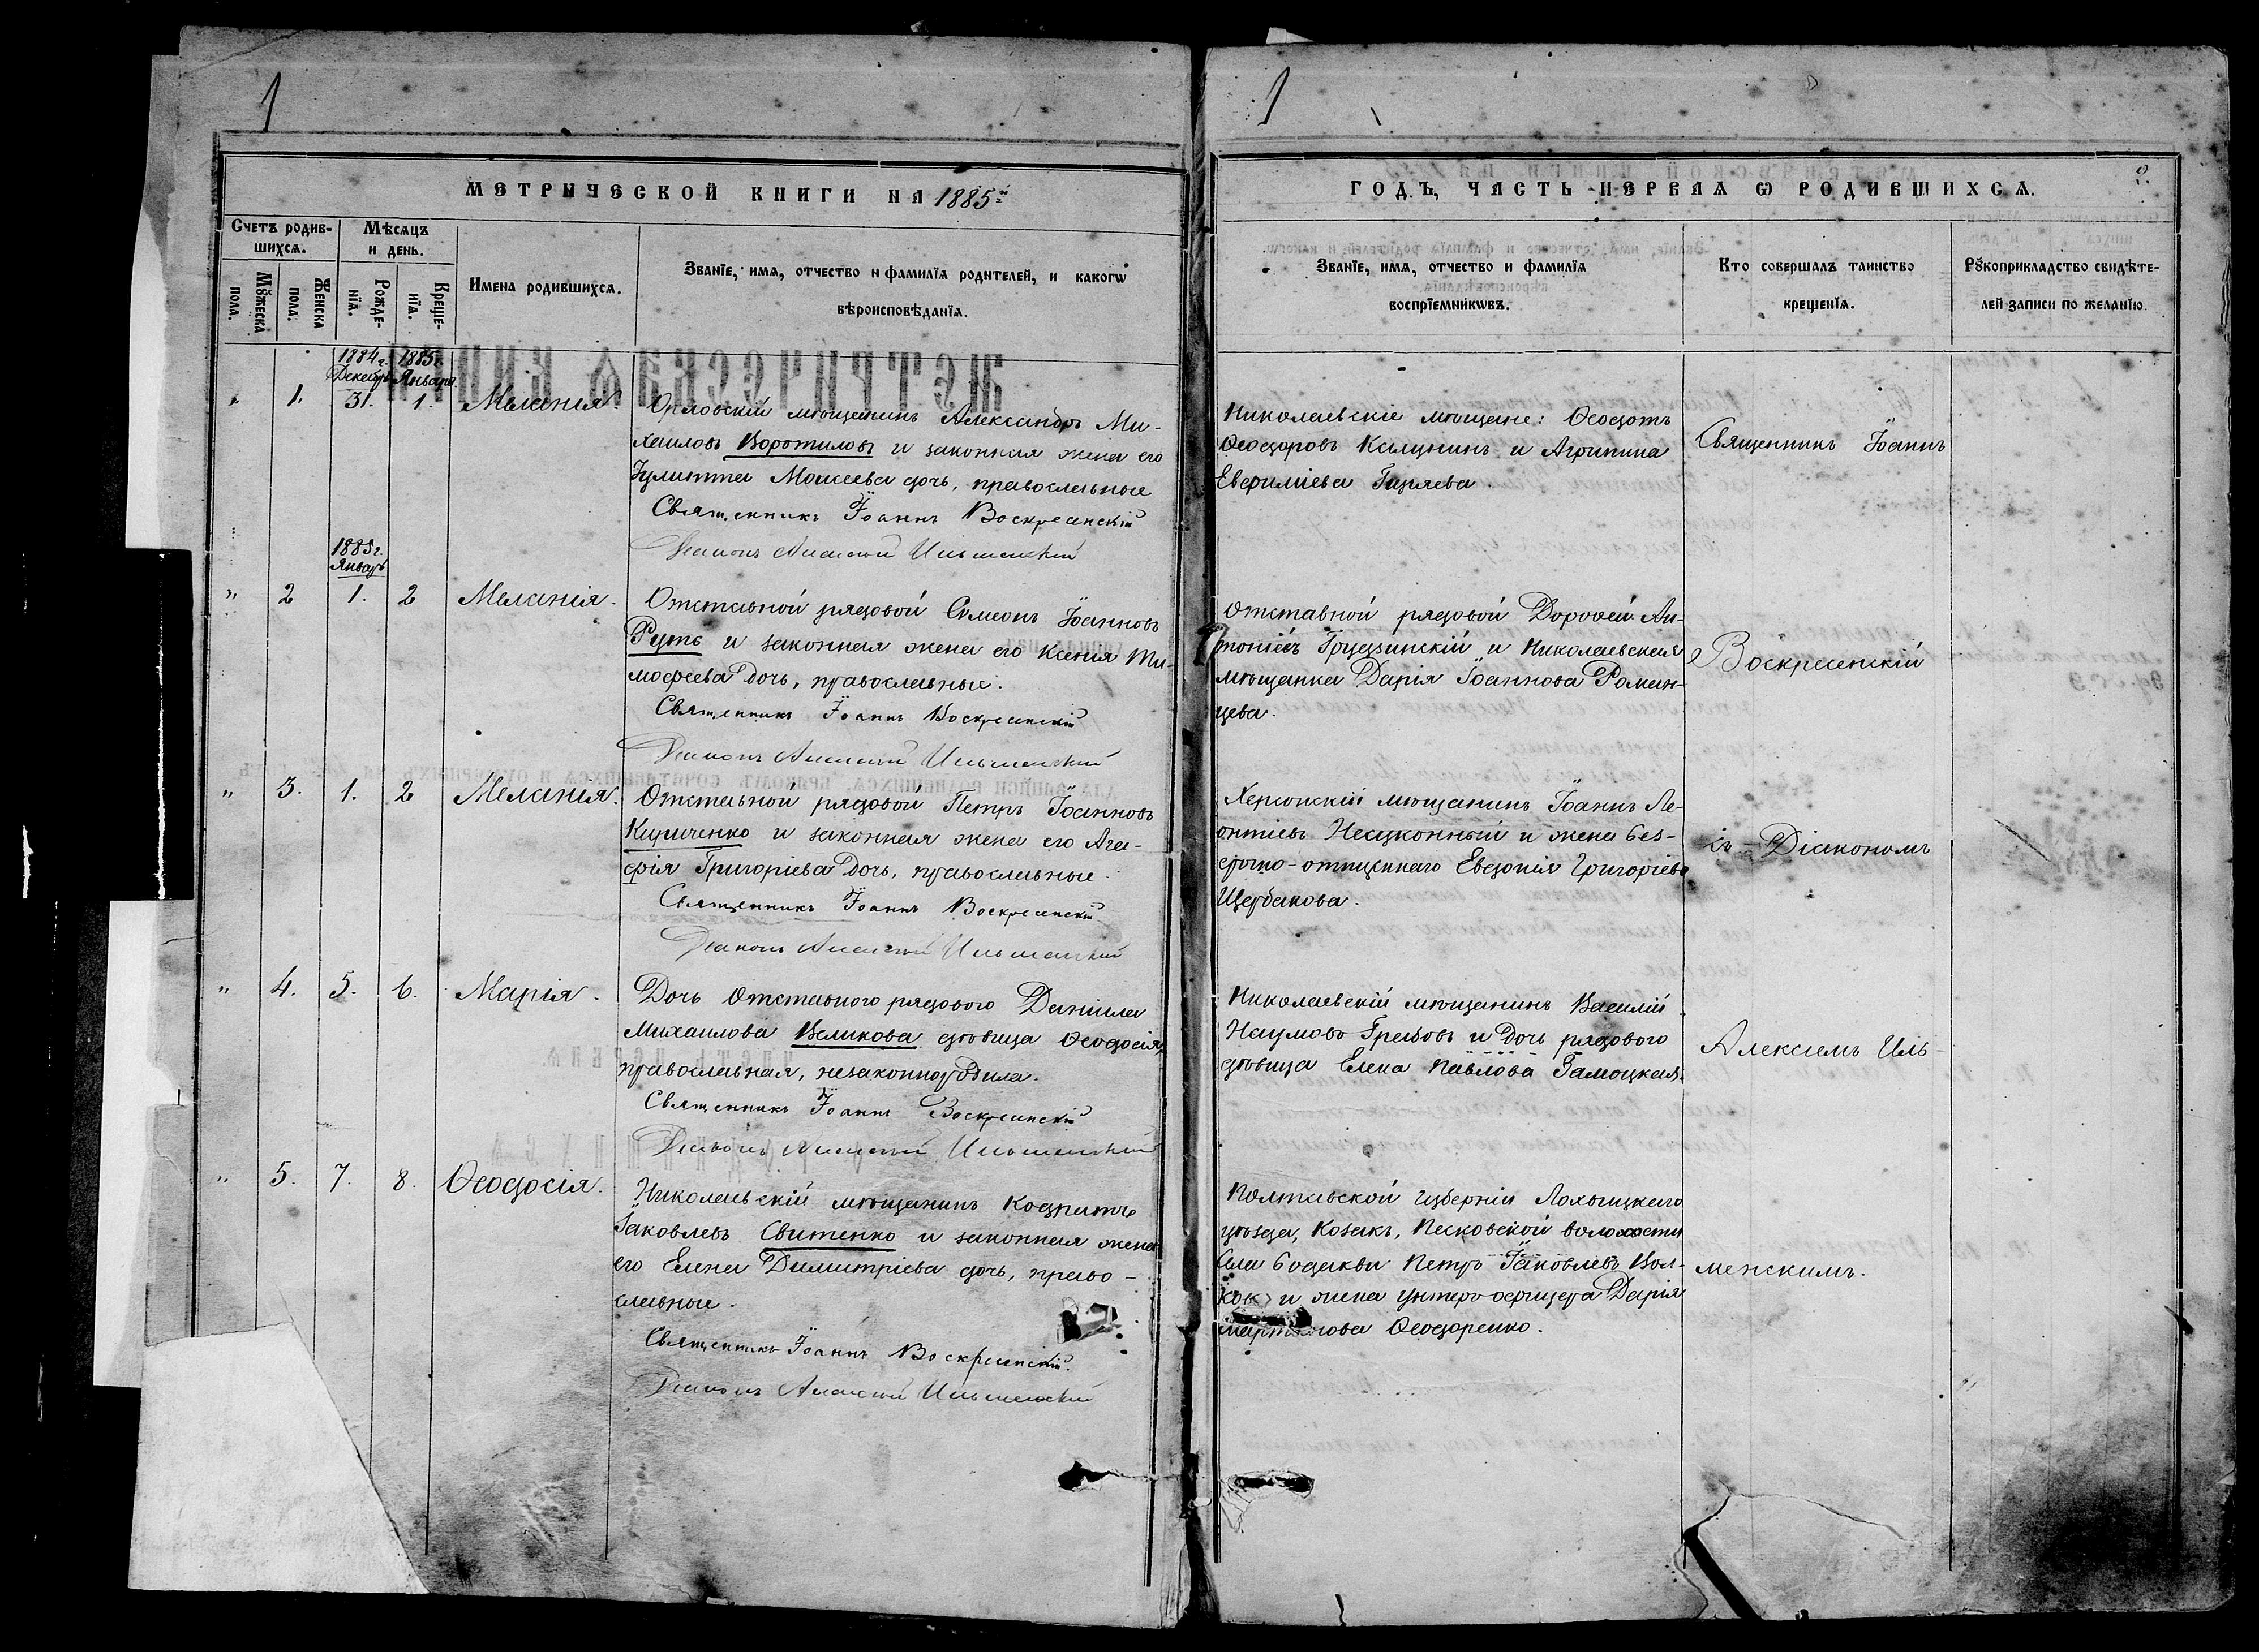 1
МЕТРИЧЕСКОЙ КНИГИ НА 1885й
Счетъ родив-
шихся.
Мѣсяцъ
и день.
Мꙋжеска
пола.
Женска
пола.
Рожде-
нїя.
Креще-
нїя.
Имена родившихся.
Званїе, имя, отчество и фамилїя родителей, и какогѡ
вѣроисповѣданїя.
1884 г. 1885 г.
Декабрь Январь
" 1. 31. 1. Меланія.
Орловскій мѣщанинъ Александръ Ми-
хаиловъ Воротиловъ и законная жена его
Іулитта Моисеева дочь, православные
Священникъ Іоаннъ Воскресенскій
Діаконъ Алексій Ильменскій
1885 г.
Январь
" 2 1. 2 Меланія.
Отставной рядовой Симеонъ Іоанновъ
Руть и законная жена его Ксенія Ти-
мофеева дочь, православные.
Священникъ Іоаннъ Воскресенскій
Діаконъ Алексій Ильменскій
" 3. 1. 2 Меланія.
Отставной рядовой Петръ Іоанновъ
Кириченко и законная жена его Ага-
фія Григоріева дочь, православные.
Священникъ Іоаннъ Воскресенскій
Діаконъ Алексій Ильменскій
" 4. 5. 6. Марія.
Дочь отставного рядового Даніила
Михаилова Великова дѣвица Ѳеодосія,
православная, незаконнородила.
Священникъ Іоаннъ Воскресенскій
Діаконъ Алексій Ильменскій
" 5. 7. 8. Ѳеодосія.
Николаевскій мѣщанинъ Кодратъ
Іаковлевъ Свитенко и законная жена
его Елена Димитріева дочь, право-
славные.
Священникъ Іоаннъ Воскресенскій.
Діаконъ Алексій Ильменскій
1
2.
ГОДЪ, ЧАСТЬ ПЕРВАЯ Ѡ РОДИВШИХСЯ.
Званїе, имя, отчество и фамилїя
воспрїемникѡвъ.
Кто совершалъ таинство
крещенїя.
Рꙋкоприкладство свидѣте-
лей записи по желанїю.
Николаевскіе мѣщане: Ѳеодотъ
Ѳеодоровъ Калунинъ и Агрипина
Евфиміева Гиряева.
Отставной рядовой Дороѳей Ан-
тоніевъ Грудзинскій и Николаевская
мѣщанка Дарія Іоаннова Роман-
цева.
Херсонскій мѣщанинъ Іоаннъ Ле-
онтіевъ Неадконный и жена без-
срочно-отпущеннаго Евдокія Григоріева
Щербакова.
Николаевскій мѣщанинъ Василій
Наумовъ Грековъ и дочь рядового
дѣвица Елена Павлова Гамоцкая.
Полтавской губерніи Лохвицкаго
уѣзда, козакъ, Песковской волости
села Бодаквы Петръ Іаковлевъ Вол-
кок и жена унтеръ-офицера Дарія
Ѳеодоренко.
Священникъ Іоаннъ
Воскресенскій
съ Діакономъ
Алексіемъ Иль-
менскимъ.